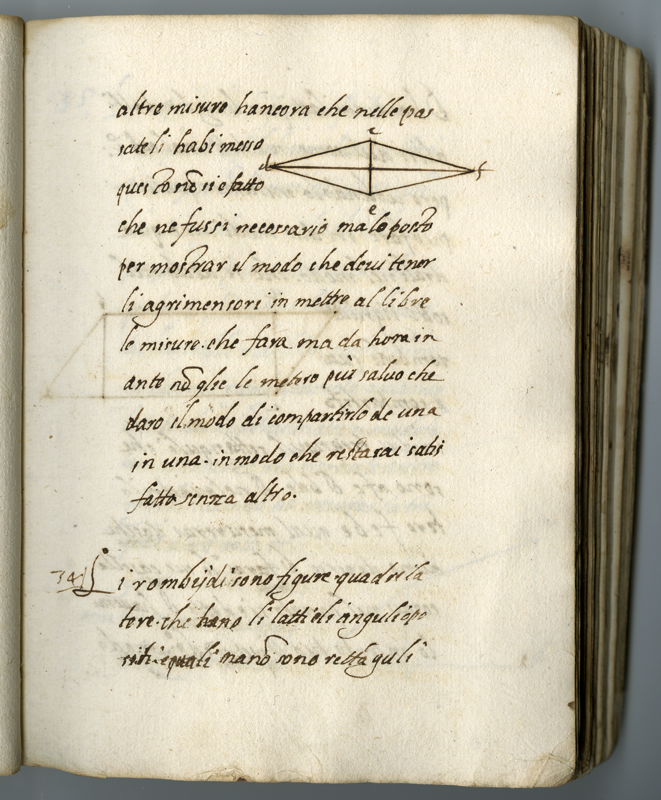 altre misure hancora che nelle pas
sateli habi messo
questo nō si e fatto
che ne fussi necessario ma lo posto
per mostrar il modo che devi tener
li agrimensori in mettre al libre
le misure che fara ma da hora in
ante nō glie le metero piu salvo che
daro il modo di compartirlo de una
in una. in modo che restarai satis
fatto senza altro.
34
i rombijdi sono figure quadrila
tere. che hano li latti eli anguli opo
siti equali manō sono rettāguli
c
d
f
e